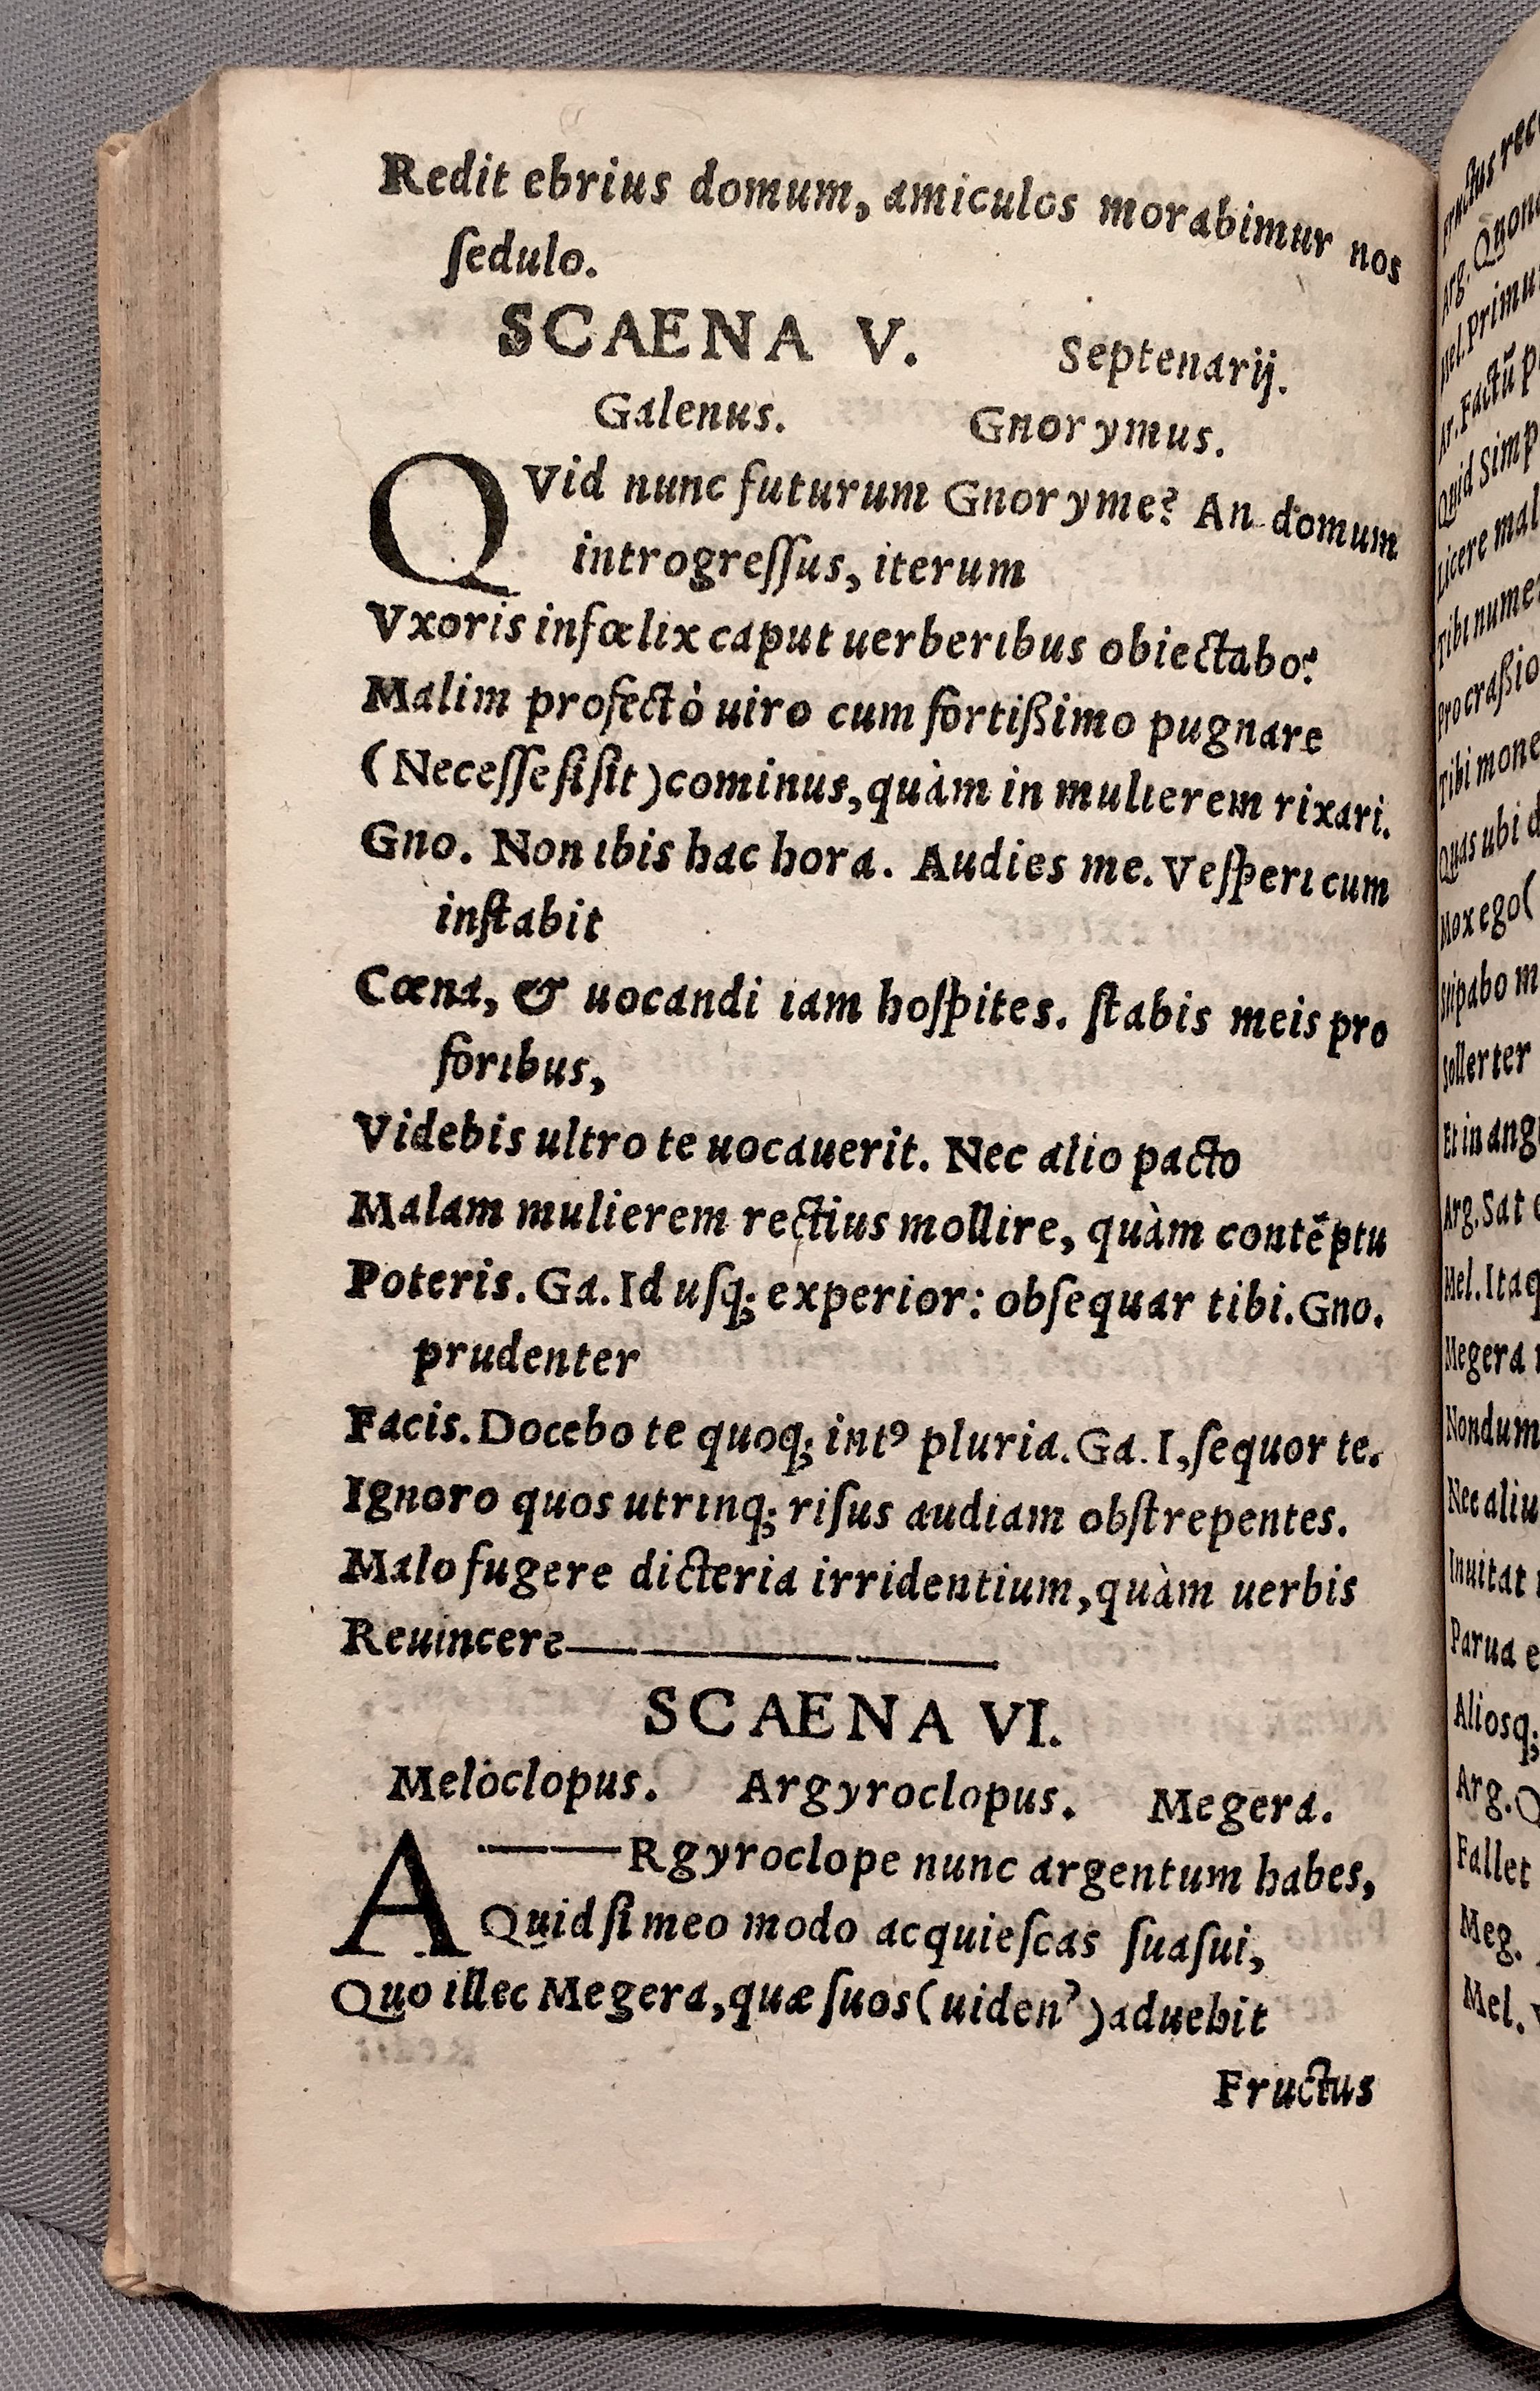 Redit ebrius domum, amiculos morabimur nos
ſedulo.
SCAENA V. Septenarij.
Galenus. Gnorymus.
QVid nunc futurum Gnoryme? An domum
introgreſſus, iterum
Vxoris infœlix caput uerberibus obiectabo?
Malim profectò uiro cum fortißimo pugnare
(Neceſſe ſi ſit) cominus, quàm in mulierem rixari.
Gno. Non ibis hac hora. Audies me. Veſperi cum
inſtabit
Cœna, & uocandi iam hoſpites. ſtabis meis pro
foribus,
Videbis ultro te uocauerit. Nec alio pacto
Malam mulierem rectius mollire, quàm contẽptu
Poteris. Ga. Id uſq; experior: obſequar tibi. Gno.
prudenter
Facis. Docebo te quoq; intꝰ pluria. Ga. I, ſequor te.
Ignoro quos utrinq; riſus audiam obſtrepentes.
Malo fugere dicteria irridentium, quàm uerbis
Reuincere————
SCAENA VI.
Meloclopus. Argyroclopus. Megera.
A——Rgyroclope nunc argentum habes,
Quid ſi meo modo acquieſcas ſuaſui,
Quo illec Megera, quæ ſuos (uiden') aduehit
Fructus
Arg. Quon
Mel. Primu
Ar. Factũ p
Quid Simp
Licere mal
Tibi nume
Pro craßio
Tibi mone
Quas ubi d
Mox ego (
Stipabo m
Sollerter
Et in ang
Arg. Sat
Mel. Itaq
Megera
Nondum
Nec aliu
Inuitat
Parua e
Alioſq;
Arg. Q
Fallet
Meg.
Mel.